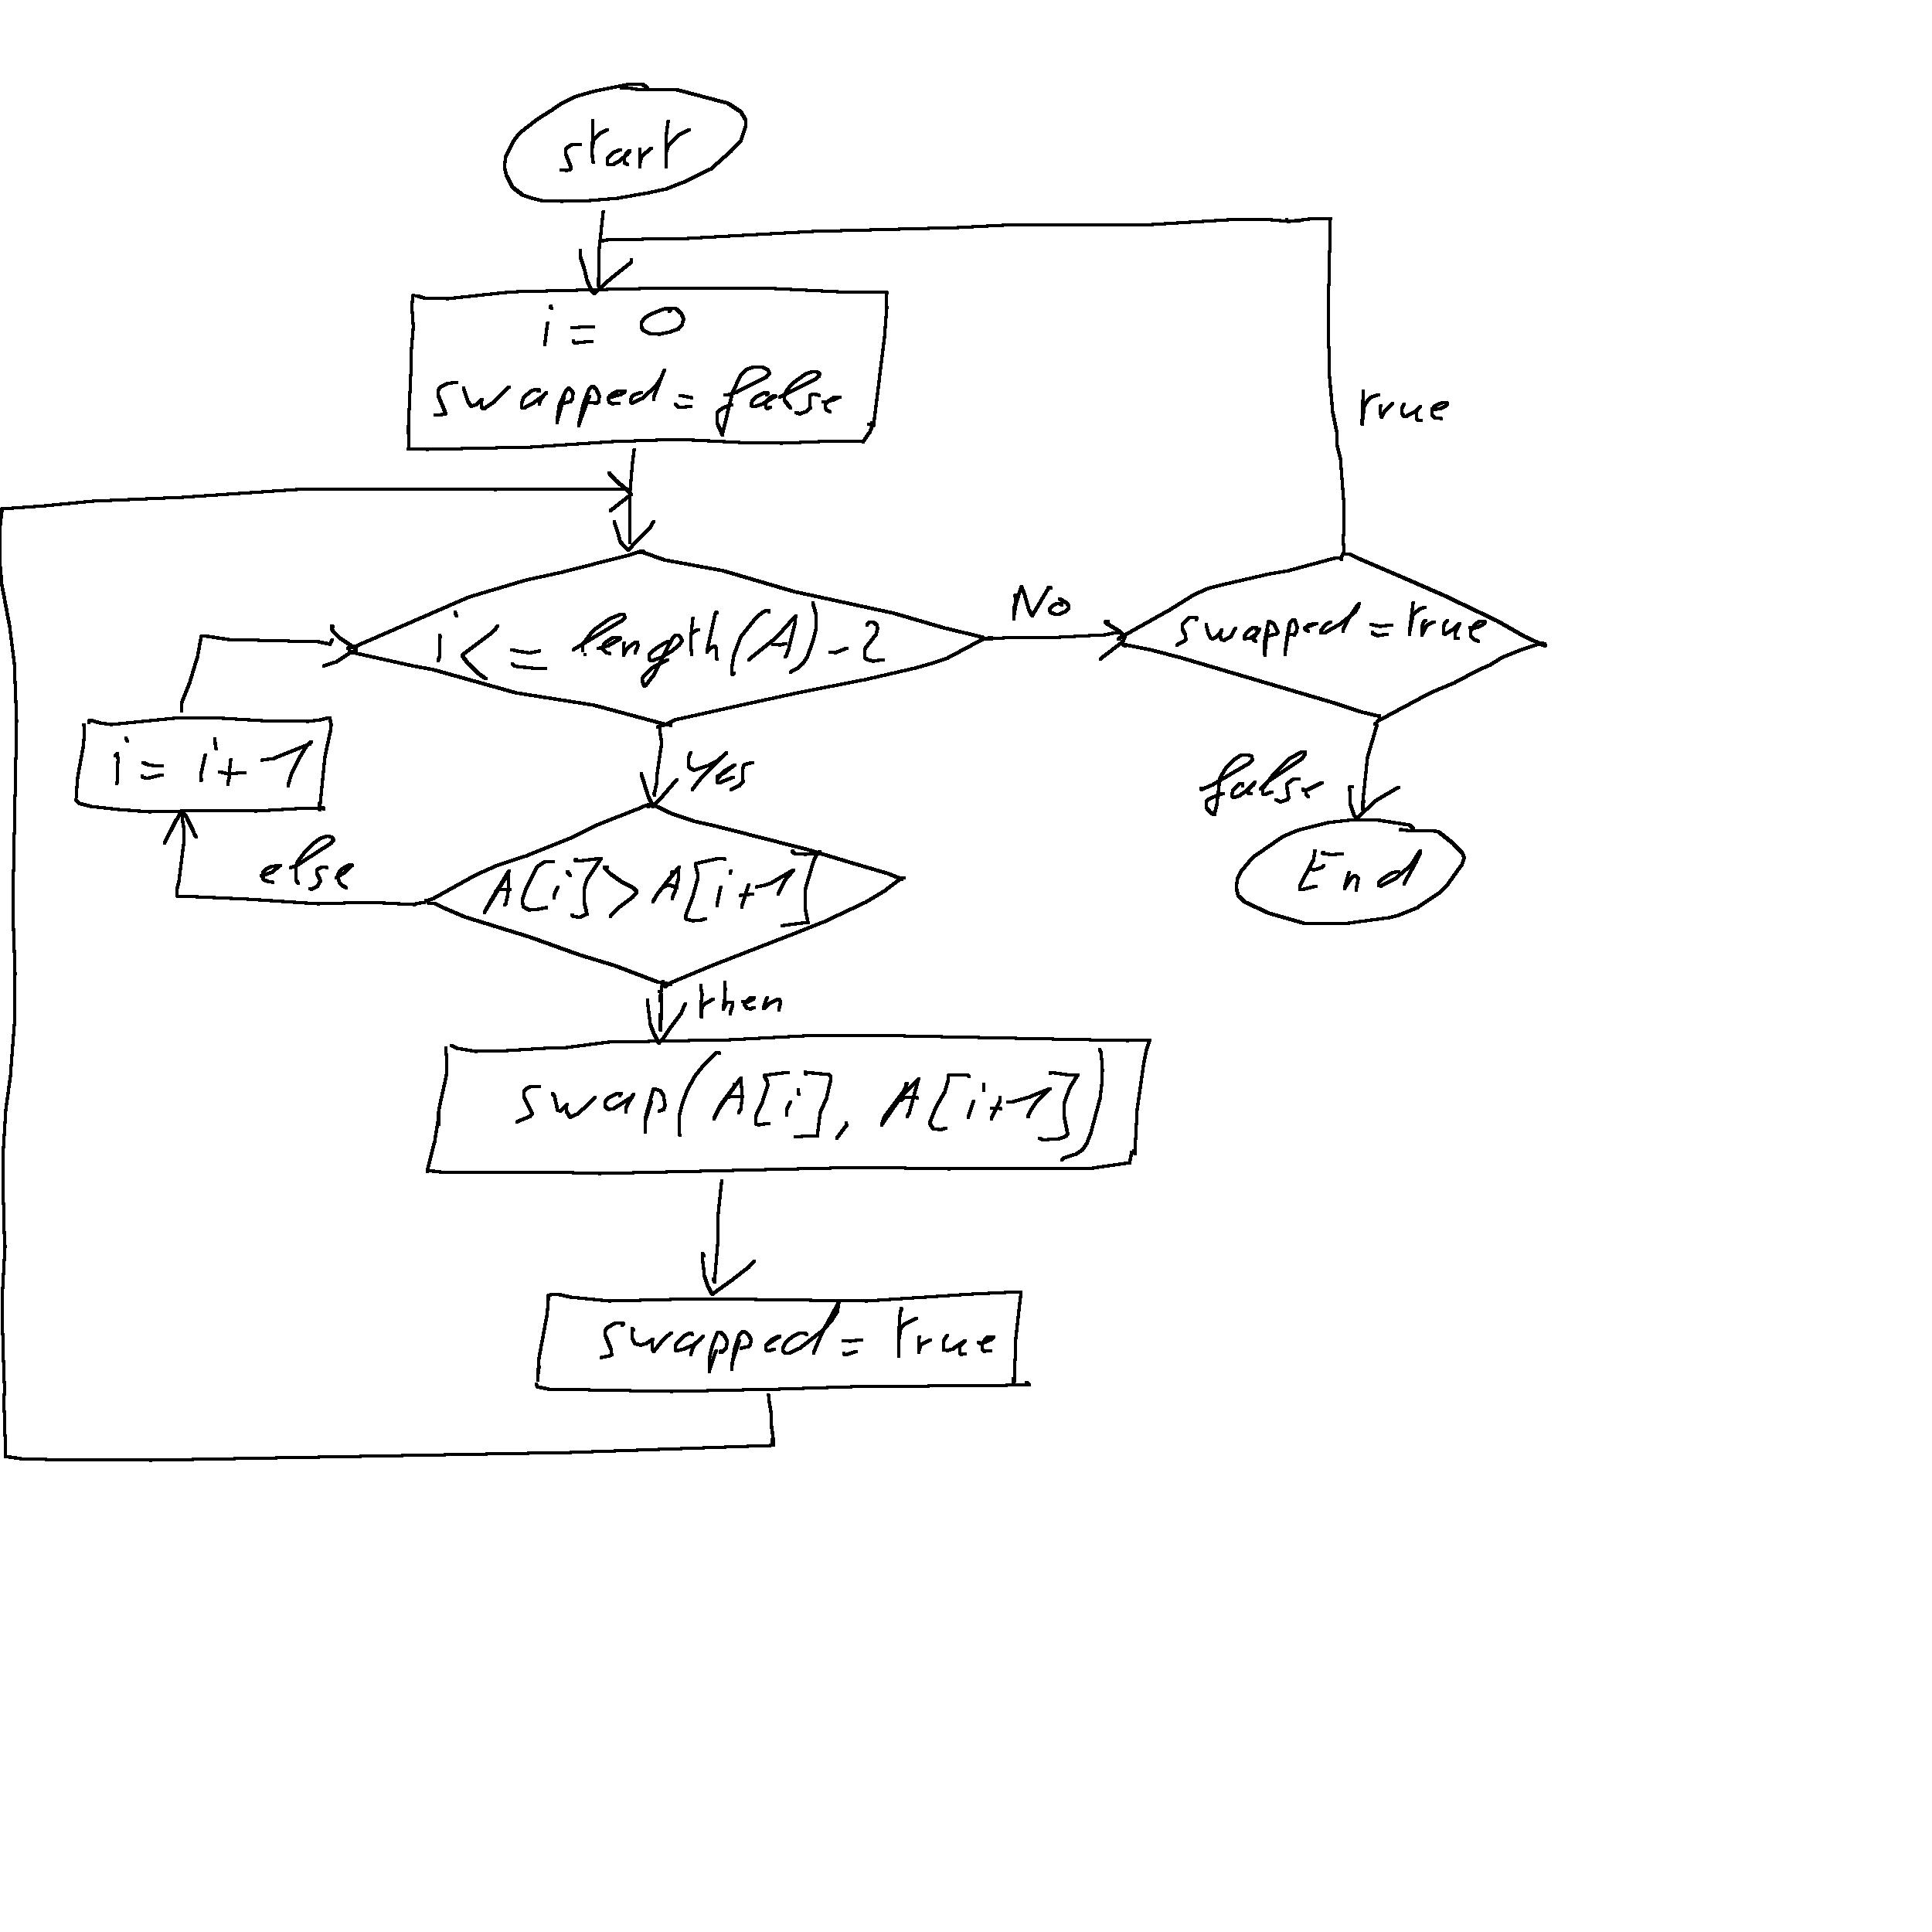 start
i = 0
swapped = false
true
i <= length(A) - 2
No
swapped = true
i = i + 1
Yes
false
else
A[i] > A[i+1]
End
then
swap(A[i], A[i+1])
swapped = true